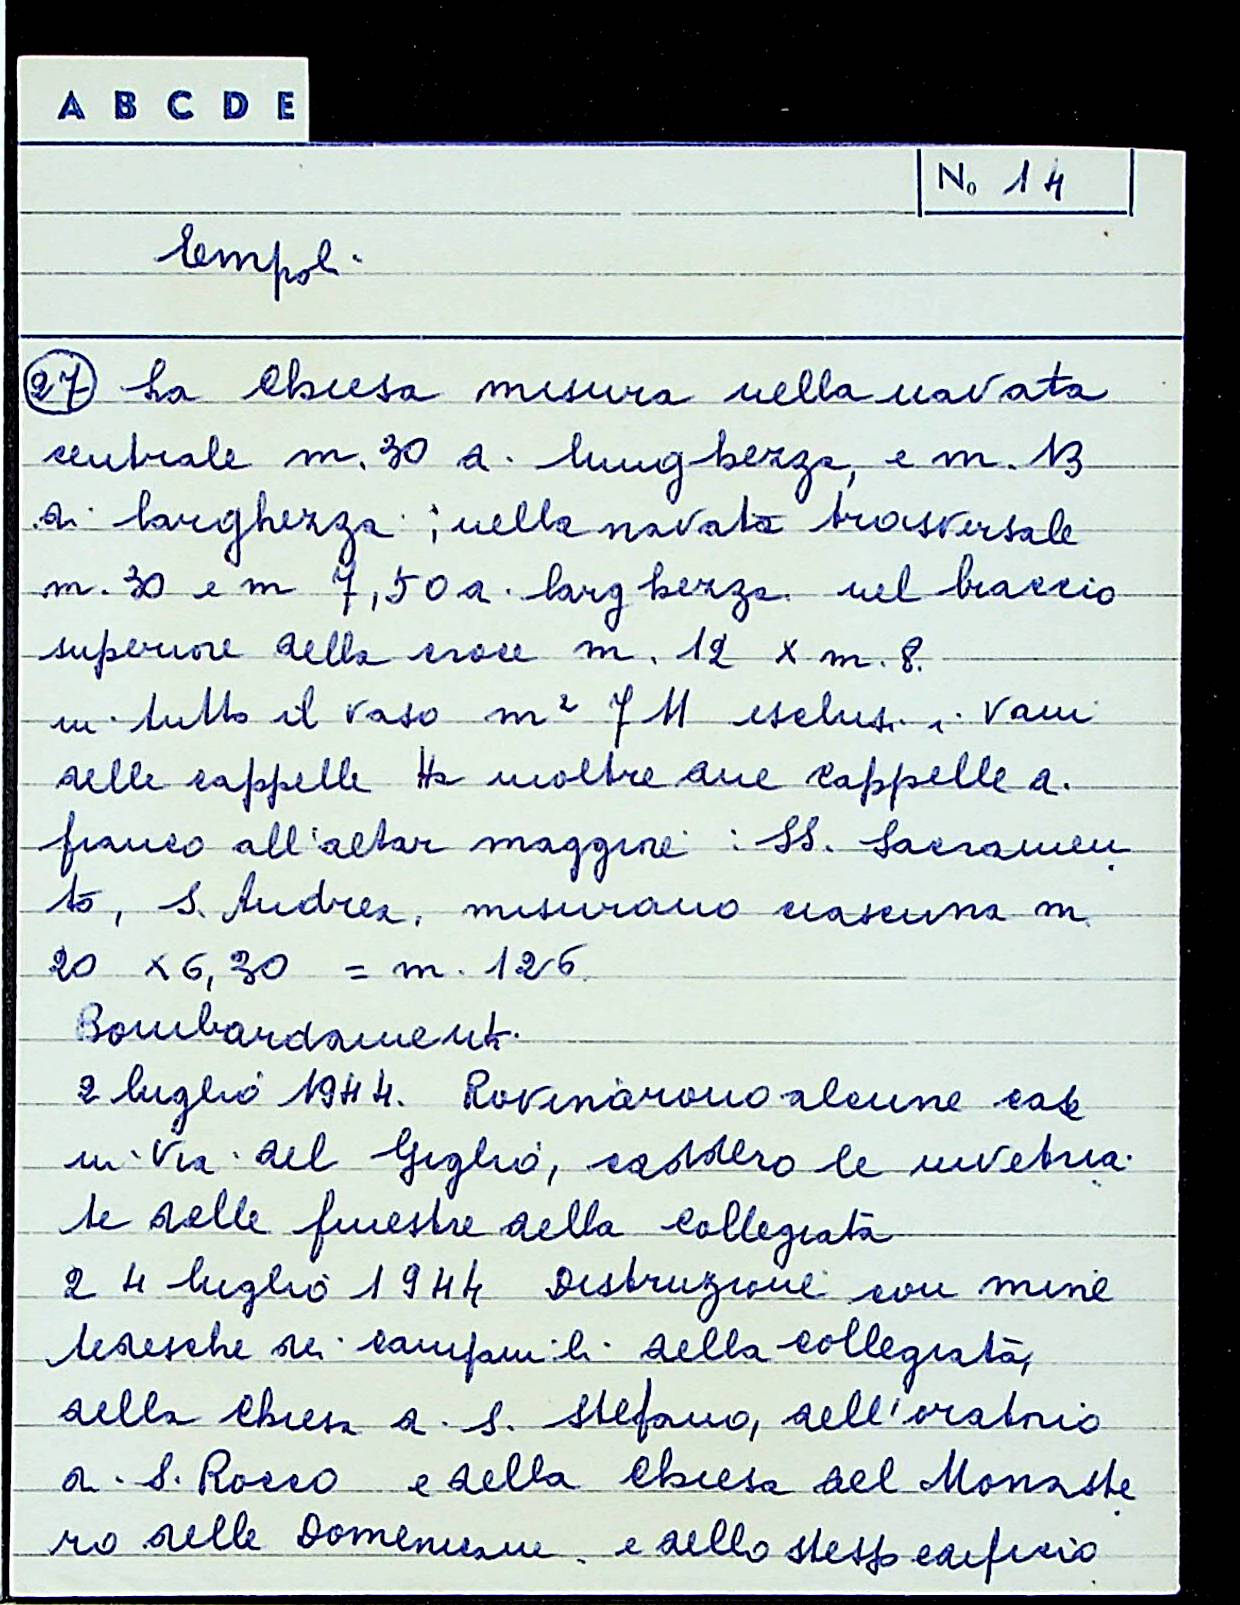 A B C D E
No 14
Empoli
27 La Chiesa misura nella navata
centrale m. 30 di lunghezza, e m. 13
di larghezza; nella navata trasversale
m. 30 e m 7,50 di larghezza. nel braccio
superiore della croce m. 12 x m. 8.
in tutto il vaso m² 711 esclusi i vani
delle cappelle Ha inoltre due cappelle di
fianco all'altar maggiore: SS. Sacramen
to, S. Andrea, misurano ciascuna m.
20 x 6,30 = m. 126.
Bombardamenti
2 luglio 1944. Rovinarono alcune case
in Via del Giglio, caddero le invetria-
te delle finestre della Collegiata
24 luglio 1944 Distruzione con mine
tedesche dei campanili della Collegiata,
della Chiesa di S. Stefano, dell'oratorio
di S. Rocco e della Chiesa del Monaste
ro delle Domenicane. e dello stesso edificio